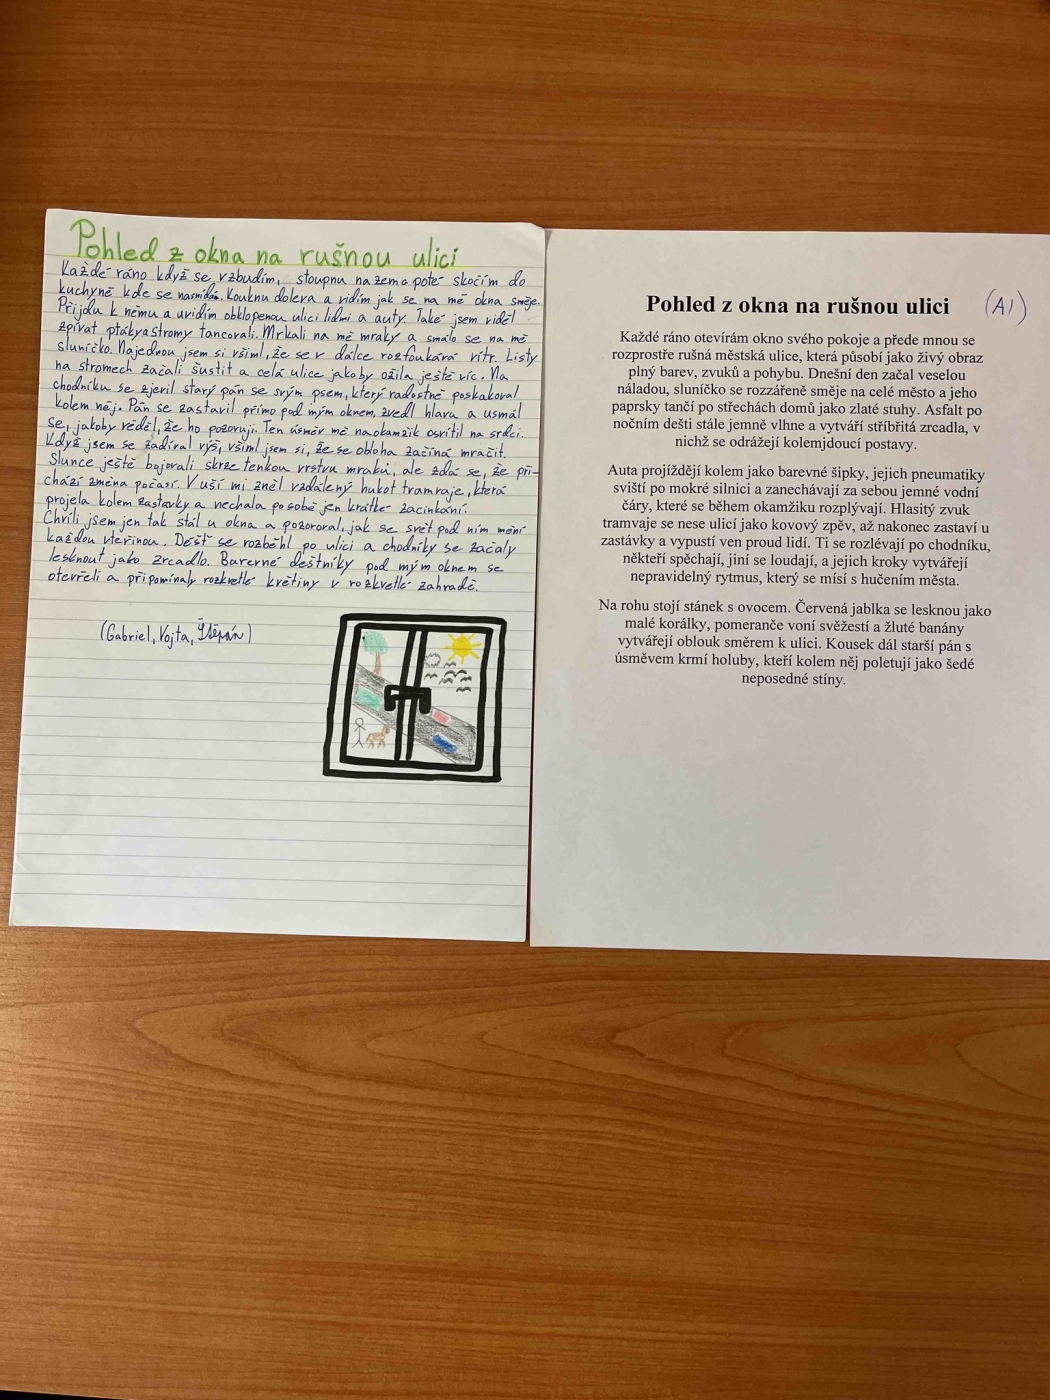 Pohled z okna na rušnou ulici
Každé ráno když se vzbudím, stoupnu na zem a poté skočím do
kuchyně kde se nasnídám. Kouknu doleva a vidím jak se na mě okna směje.
Přijdu k němu a uvidím obklopenou ulici lidmi a auty. Také jsem viděl
zpívat ptáky a stromy tancovali. Mrkali na mě mraky a smálo se na mě
sluníčko. Najednou jsem si všiml, že se v dálce rozfoukává vítr. Listy
na stromech začali šustit a celá ulice jakoby ožila ještě víc. Na
chodníku se zjevil starý pán se svým psem, který radostně poskakoval
kolem něj. Pán se zastavil přímo pod mým oknem, zvedl hlavu a usmál
se, jakoby věděl, že ho pozoruji. Ten úsměv mě na okamžik osvítil na srdci.
Když jsem se zadíval výš, všiml jsem si, že se obloha začíná mračit.
Slunce ještě bojovali skrze tenkou vrstvu mraků, ale zdá se, že při-
chází změna počasí. V uší mi zněl vzdálený hukot tramvaje, která
projela kolem zastávky a nechala po sobě jen krátké zacinkání.
Chvíli jsem jen tak stál u okna a pozoroval, jak se svět pod ním mění
každou vteřinou. Déšť se rozběhl po ulici a chodníky se začaly
lesknout jako zrcadlo. Barevné deštníky pod mým oknem se
otevřeli a připomínaly rozkvetlé květiny v rozkvetlé zahradě.
(Gabriel, Vojta, Štěpán)
Pohled z okna na rušnou ulici (AI)
Každé ráno otevírám okno svého pokoje a přede mnou se
rozprostře rušná městská ulice, která působí jako živý obraz
plný barev, zvuků a pohybu. Dnešní den začal veselou
náladou, sluníčko se rozzářeně směje na celé město a jeho
paprsky tančí po střechách domů jako zlaté stuhy. Asfalt po
nočním dešti stále jemně vlhne a vytváří stříbřitá zrcadla, v
nichž se odrážejí kolemjdoucí postavy.
Auta projíždějí kolem jako barevné šipky, jejich pneumatiky
sviští po mokré silnici a zanechávají za sebou jemné vodní
čáry, které se během okamžiku rozplývají. Hlasitý zvuk
tramvaje se nese ulicí jako kovový zpěv, až nakonec zastaví u
zastávky a vypustí ven proud lidí. Ti se rozlévají po chodníku,
někteří spěchají, jiní se loudají, a jejich kroky vytvářejí
nepravidelný rytmus, který se mísí s hučením města.
Na rohu stojí stánek s ovocem. Červená jablka se lesknou jako
malé korálky, pomeranče voní svěžestí a žluté banány
vytvářejí oblouk směrem k ulici. Kousek dál starší pán s
úsměvem krmí holuby, kteří kolem něj poletují jako šedé
neposedné stíny.